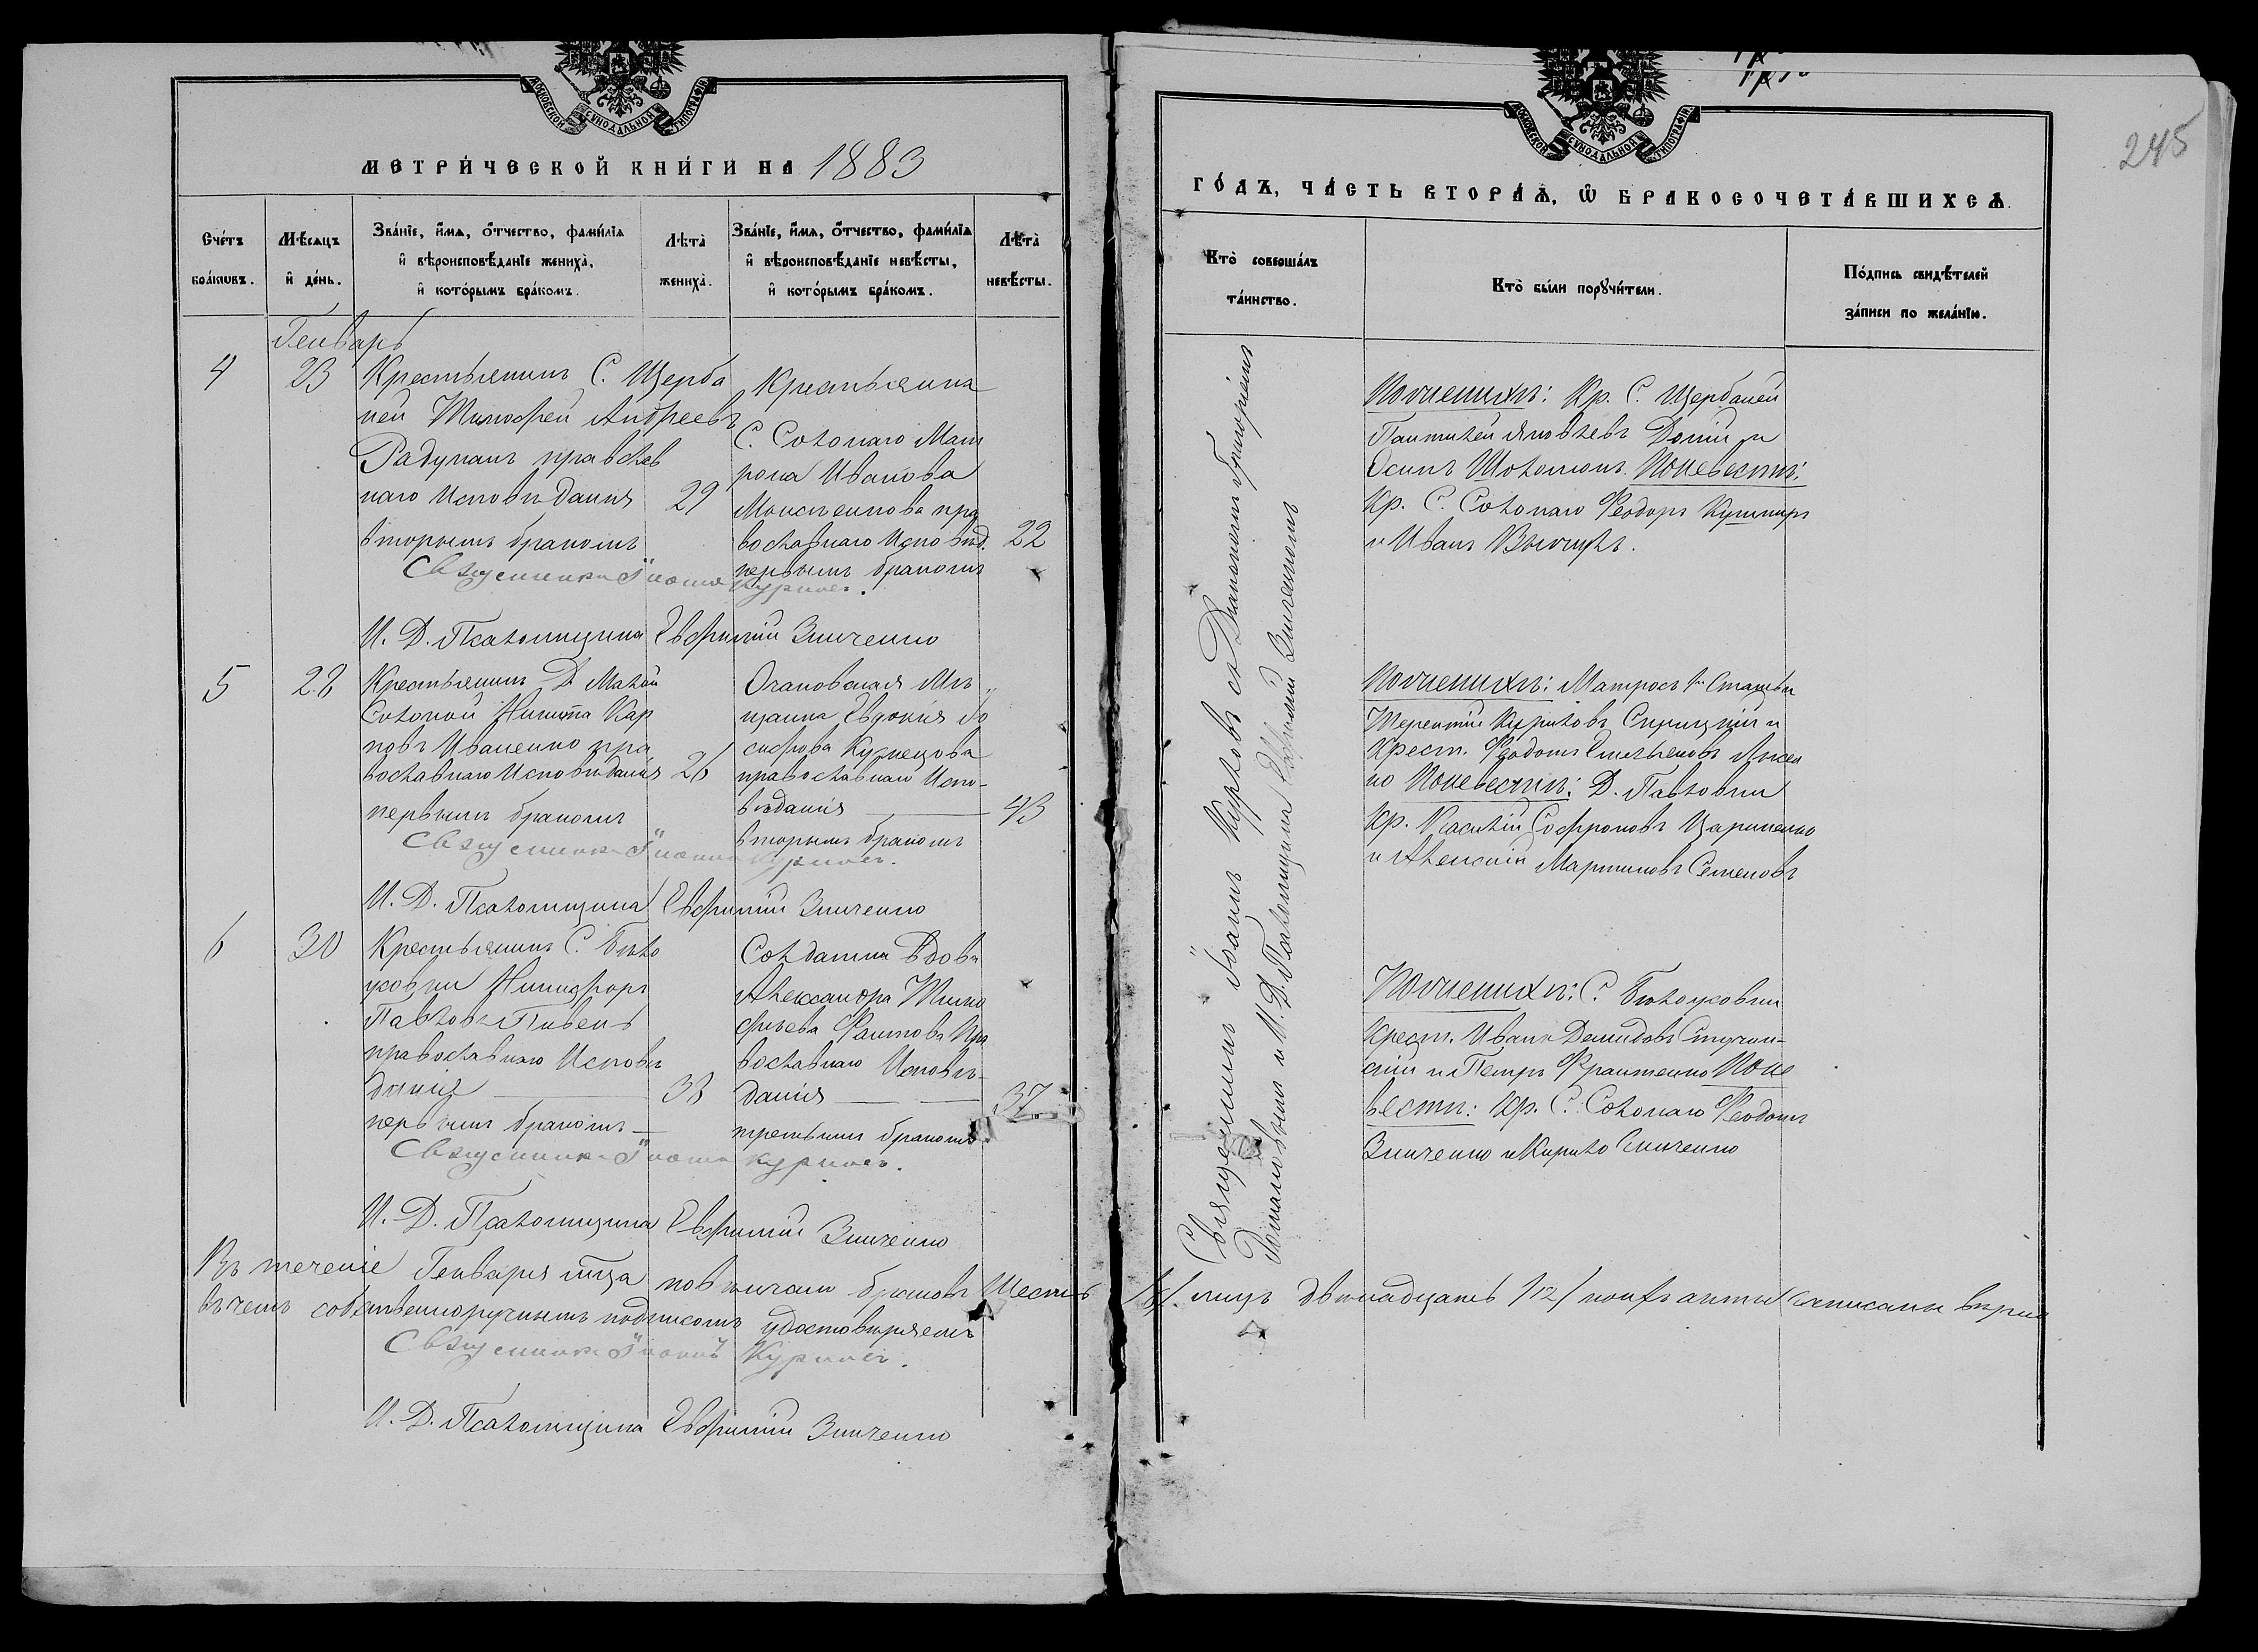 МОСКОВСКОЙ СѴНОДАЛЬНОЙ ТИПОГРАФІИ.
МЕТРИ́ЧЕСКОЙ КНИ́ГИ НА 1883
Сче́тъ бра́кѡвъ.
Мѣ́сяцъ и҆ де́нь.
Зва́нїе, и҆́мѧ, ѻ҆́тчество, фами́лїѧ и҆ вѣроисповѣ́данїе жениха̀, и҆ кото́рымъ бра́комъ.
Лѣта̀ жениха̀.
Зва́нїе, и҆́мѧ, ѻ҆́тчество, фами́лїѧ и҆ вѣроисповѣ́данїе невѣ́сты, и҆ кото́рымъ бра́комъ.
Лѣта̀ невѣ́сты.
Генварь
4
23
Крестьянинъ С. Щерба
ней Тимофей Андреевъ
Радулапъ правслав
наго Исповѣданія 29
вторымъ бракомъ
Крестьянка
С. Солонаго Мат
рона Иванова
пра
вославнаго Исповѣд. 22
первымъ бракомъ
Священникъ Іоаннъ Курловъ.
И. Д. Псаломщика Евфимій Зинченко
5
28
Крестьянинъ Д. Малой
Солоной Никита Кар
повъ Иваненко пра
вославнаго Исповѣданія 26
первымъ бракомъ
Очаковская Мѣ
щанка Евдокія Іо
сифова Кузнецова
православнаго Испо-
вѣданія 43
вторымъ бракомъ
Священникъ Іоаннъ Курловъ.
И. Д. Псаломщика Евфимій Зинченко
6
30
Крестьянинъ С. Бѣло
усовки Никифоръ
Павловъ Пивень
православнаго Исповѣ
данія 38
первымъ бракомъ
Солдатка Вдова
Александра Тимо
фѣева Фаитова Пра
вославнаго Исповѣ-
данія 37
третьимъ бракомъ
Священникъ Іоаннъ Курловъ.
И. Д. Псаломщика Евфимій Зинченко
Въ теченіе Генваря мца повѣнчано браковъ Шесть
въ чемъ собственноручнымъ подписомъ удостовѣряемъ
Священникъ Іоаннъ Курловъ.
И. Д. Псаломщика Евфимій Зинченко
245
МОСКОВСКОЙ СѴНОДАЛЬНОЙ ТИПОГРАФІИ.
ГО́ДЪ, ЧА́СТЬ ВТОРА́Ѧ, Ѽ БРАКОСОЧЕТА́ВШИХСѦ.
Кто̀ соверша́лъ та́инство.
Кто̀ бы́ли порꙋчи́тели.
По́дпись свидѣ́телей за́писи по жела́нїю.
Священникъ Іоаннъ Курловъ съ Діакономъ Григоріемъ
Романовымъ и И. Д. Псаломщика Евфиміей Зинченкомъ
Поженихѣ: Кр. С. Щербаней
Пантилей Яковлевъ Доній и
Осипъ Шоломонъ. Поневестѣ:
Кр. С. Солонаго Феодоръ Кушниръ
и Иванъ
Поженихѣ: Матросъ
Терентій Кириловъ Сприцкій и
Крест. Феодотъ Емельяновъ Лисен
ко Поневестѣ: Д. Павловки
Кр. Василій Софроновъ Цариненко
и Алексій Мартиновъ Семеновъ
Поженихѣ: С. Бѣлоусовки
Крест. Иванъ Демидовъ
и Петръ Фрактенко Поне
вестѣ: Кр. С. Солонаго Феодотъ
Зинченко и Кирило Зинченко
/6/ лицъ двѣнадцать /12/ акты записаны вѣрно